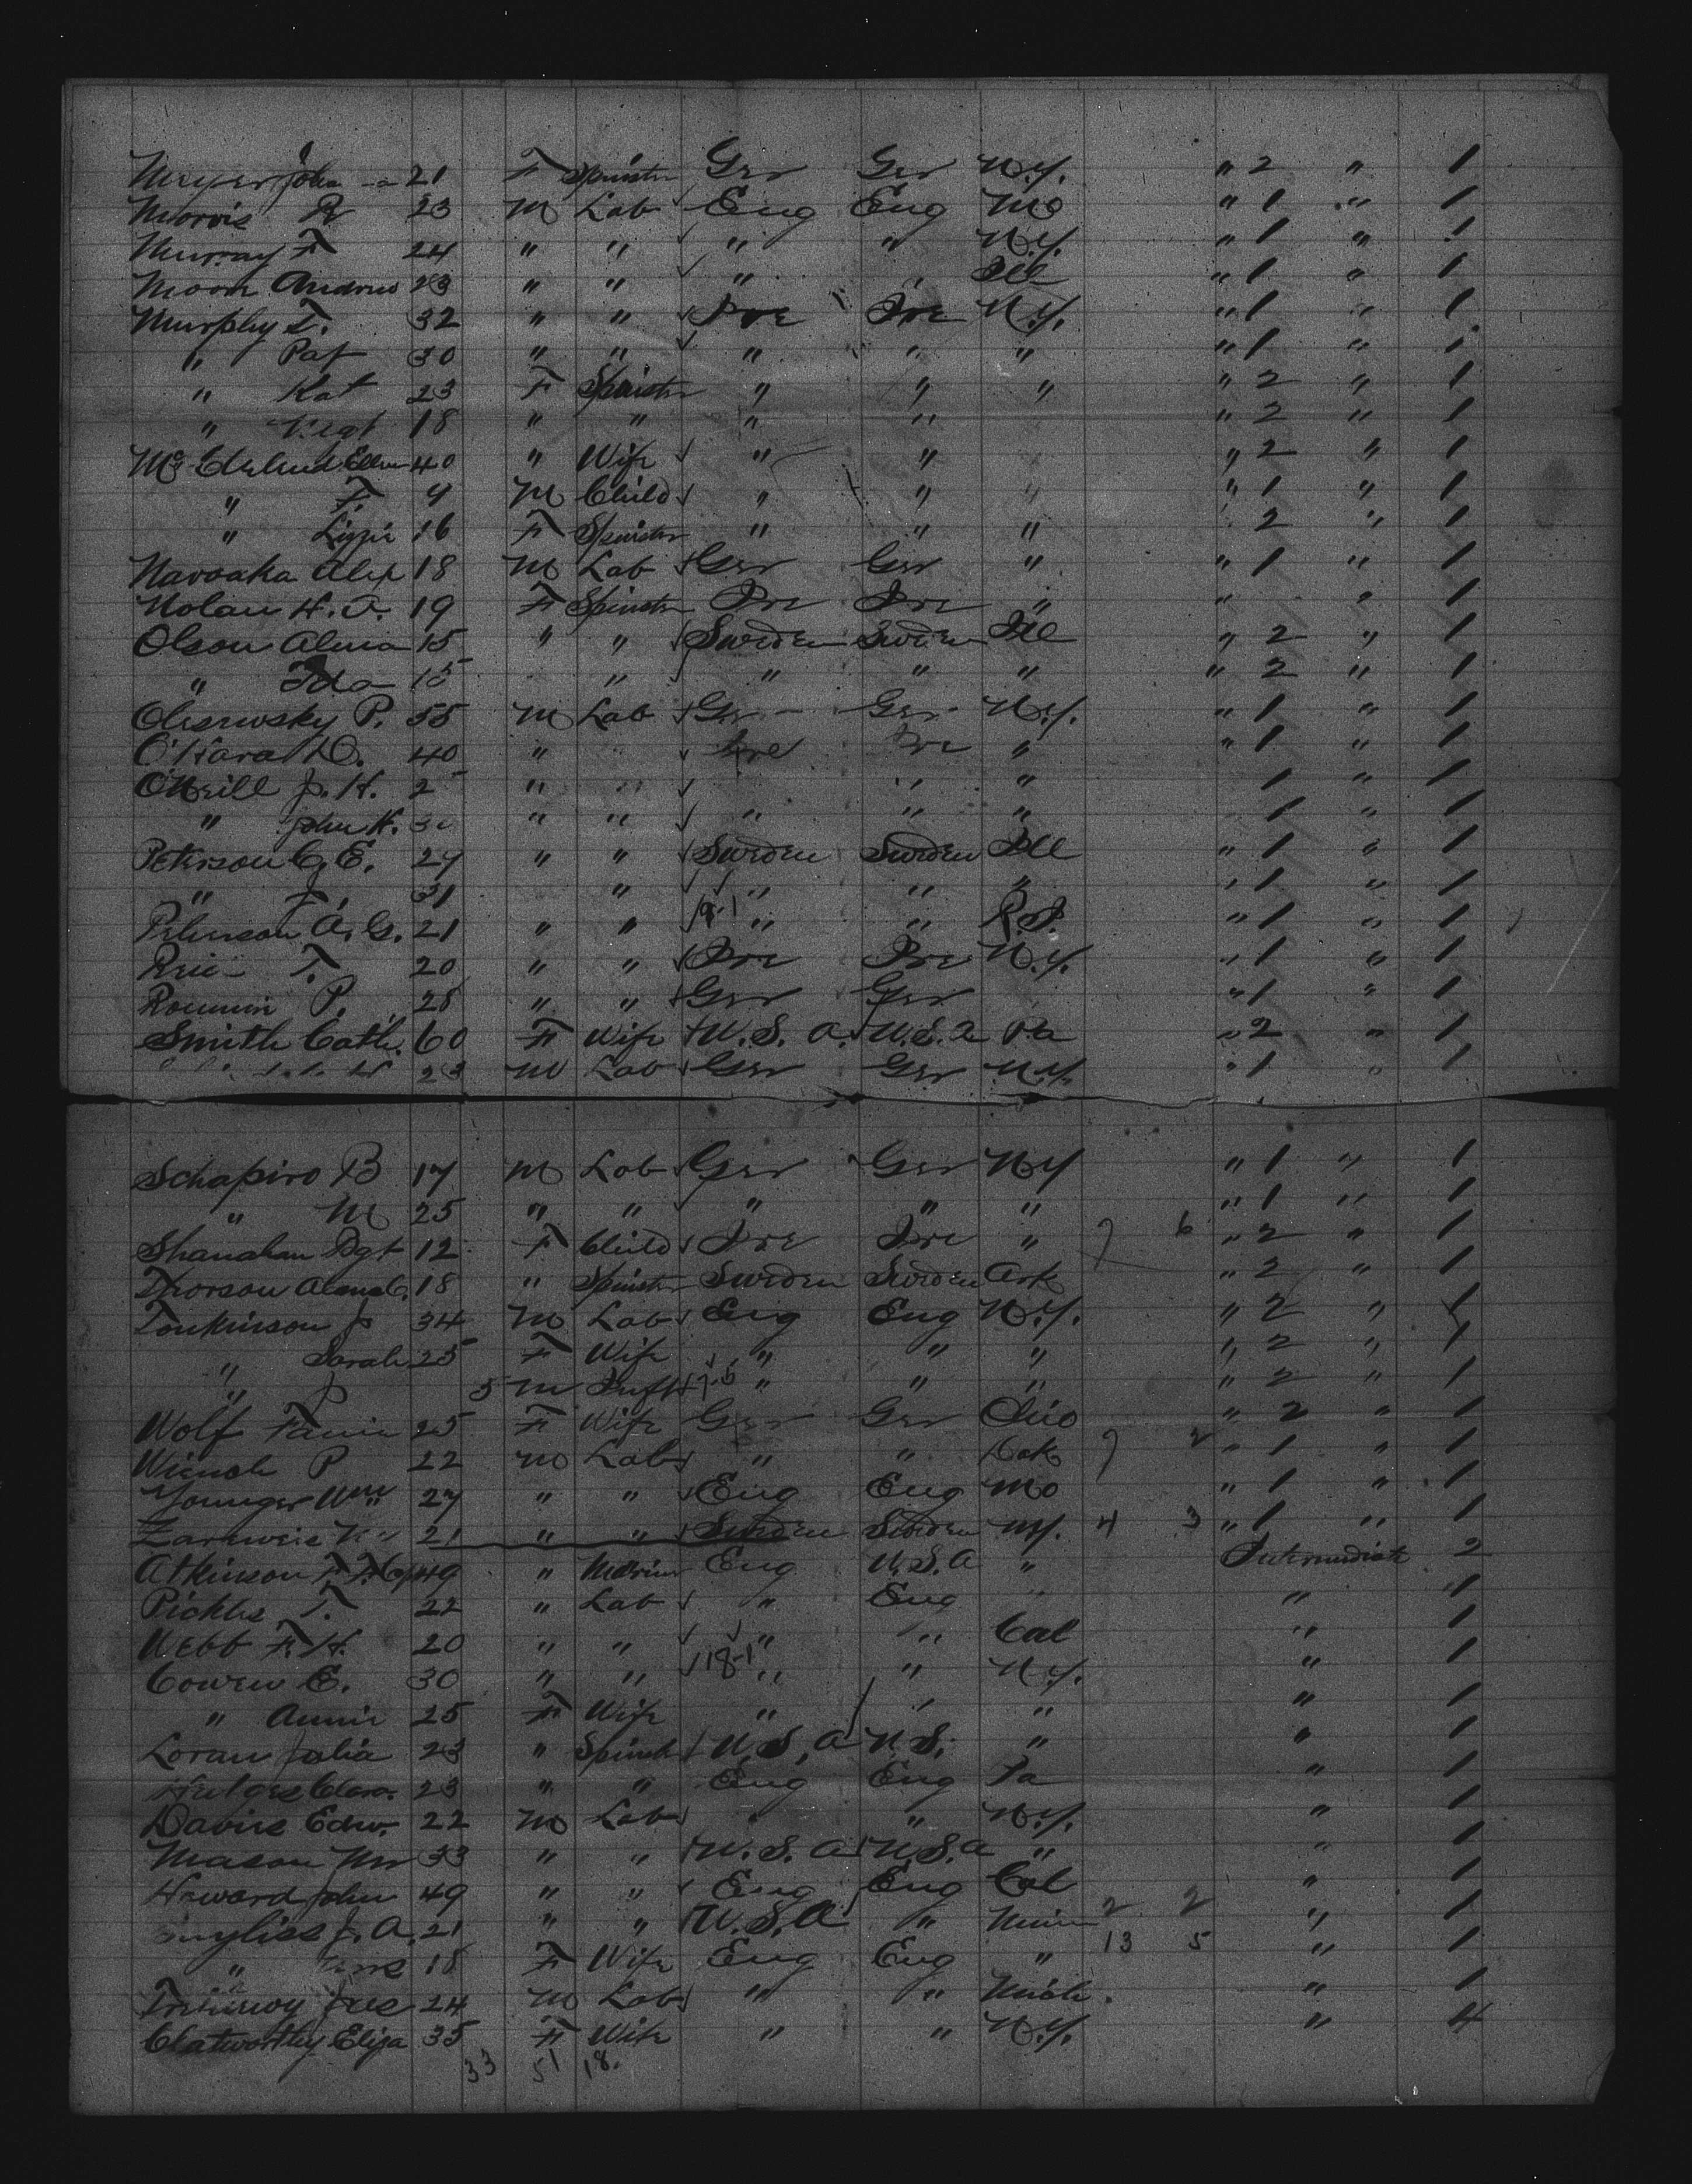 Meyer John 21 F Spinster Ger Ger N.Y. " 2 " 1
Morris R 23 M Lab Eng Eng Mo " 1 " 1
Murray F 24 " " " " N.Y. " 1 " 1
Moon Andrew 23 " " " " Ill " 1 " 1
Murphy T. 32 " " Ire Ire N.Y. " 1 " 1
" Pat 30 " " " " " " 1 " 1
" Kat 23 F Spinster " " " " 2 " 1
" 18 " " " " " 2 " 1
Ellen 40 " Wife " " " 2 " 1
" F. 4 M Child " " " " 1 " 1
" Lizzie 16 F Spinster " " " " 2 " 1
Navoaka Alex 18 M Lab Ger Ger " " 1 " 1
Nolan H. A. 19 F Spinster Ire Ire " " " 1
Olson Alma 15 " " Sweden Sweden Ill " 2 " 1
" Ida 15 " " " " " 2 " 1
Olsewsky P. 55 M Lab Ger Ger N.Y. " 1 " 1
O'Hara D. 40 " Ire Ire " " 1 " 1
O'Neill J. H. 2 " " " 1 " 1
" John H. 30 " " " " " 1 " 1
Peterson C. E. 27 " " Sweden Sweden Ill " 1 " 1
" J. 31 " " " " " 1 " 1
Peterson A. G. 21 " " 9-1 " " R.I. " 1 " 1
T. 20 " " Ire Ire N.Y. " 1 " 1
P. 28 " " Ger Ger " 1 " 1
Smith Cath. 60 F Wife U.S.A. U.S.A Pa " 2 " 1
23 M Lab Ger Ger N.Y. " 1 " 1
Schapiro B 17 M Lab Ger Ger N.Y " 1 " 1
" M 25 " " " " " " 1 " 1
Shanahan Bgt 12 F Child Ire Ire " 7 6 " 2 " 1
Thorson Alma C. 18 " Spinster Sweden Sweden Ark " 2 " 1
Tonkinson J 34 M Lab Eng Eng N.Y. " 2 " 1
" Sarah 25 F Wife " " " " 2 " 1
" J 5 M Inft 7-5 " " " " 2 " 1
Wolf Fannie 25 F Wife Ger Ger Ohio " 2 " 1
P 22 M Lab " " Dak 7 2 " 1 " 1
Younger Wm 27 " " Eng Eng Mo " 1 " 1
21 " " Sweden Sweden N.Y. 4 3 " 1 " 1
Atkinson F. F. 49 " Eng U.S.A " Intermediate 2
Pickles T. 22 " Lab " Eng " " 1
Webb F. H. 20 " " " " Cal " 1
Cowen E. 30 " " 18-1 " " N.Y. " 1
" Annie 25 F Wife " " " " 1
Loran Julia 23 " Spinster U.S.A U.S. " " 1
Clara 23 " " Eng Eng Pa " 1
Davies Edw. 22 M Lab " N.Y. " 1
Mason Mr 33 " " U.S.A U.S.A " " 1
Howard John 49 " " Eng Eng Cal " 1
J. A. 21 " " U.S.A " Minn 2 2 " 1
" 18 F Wife Eng Eng " 13 5 " 1
24 M Lab " " Mich. " 1
Clatworthy Eliza 35 F Wife " " N.Y. " 4
33 51 18.